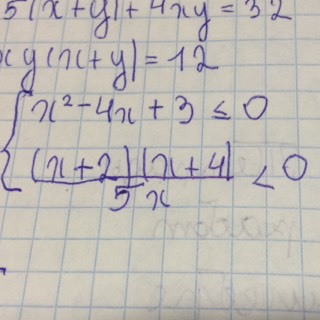 5(x+y)+4xy=32
xy(x+y)=12
x²-4x+3≤0
(x+2)(x+4)
<0
5x